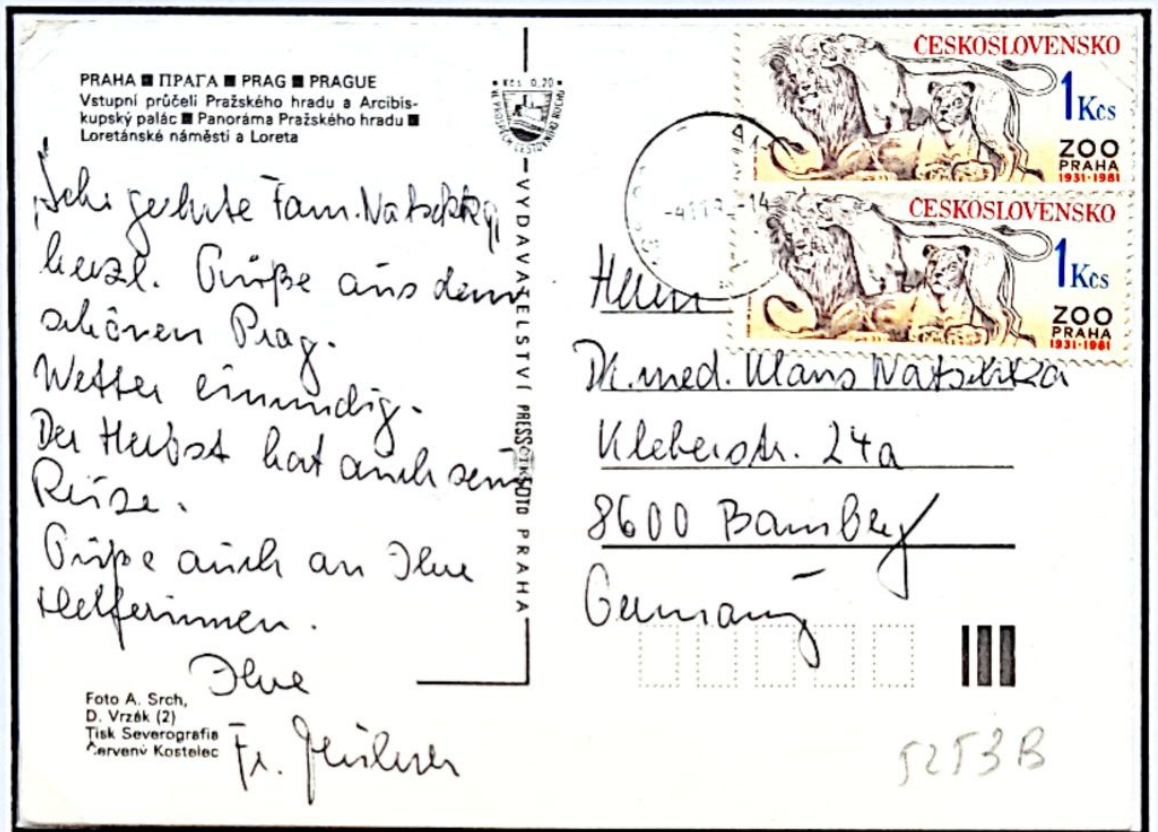 PRAHA ■ ПРАГА ■ PRAG ■ PRAGUE
Vstupní průčelí Pražského hradu a Arcibis-
kupský palác ■ Panoráma Pražského hradu ■
Loretánské náměstí a Loreta
Kčs 0,20
VE PROSPĚCH CESTOVNÍHO RUCHU
Sehr geehrte Fam.
herzl. Grüße aus dem
schönen Prag.
Wetter
Der Herbst hat auch seine
Reize.
Grüße auch an Ihre
Helferinnen.
Ihre
Fr.
Foto A. Srch,
D. Vrzák (2)
Tisk Severografia
Červený Kostelec
VYDAVATELSTVÍ PRESSFOTO PRAHA
ČESKOSLOVENSKO
1 Kčs
ZOO
PRAHA
1931-1981
ČESKOSLOVENSKO
1 Kčs
ZOO
PRAHA
1931-1981
Herrn
Dr. med. Klaus
Kleberstr. 24a
8600 Bamberg
Germany
5253B